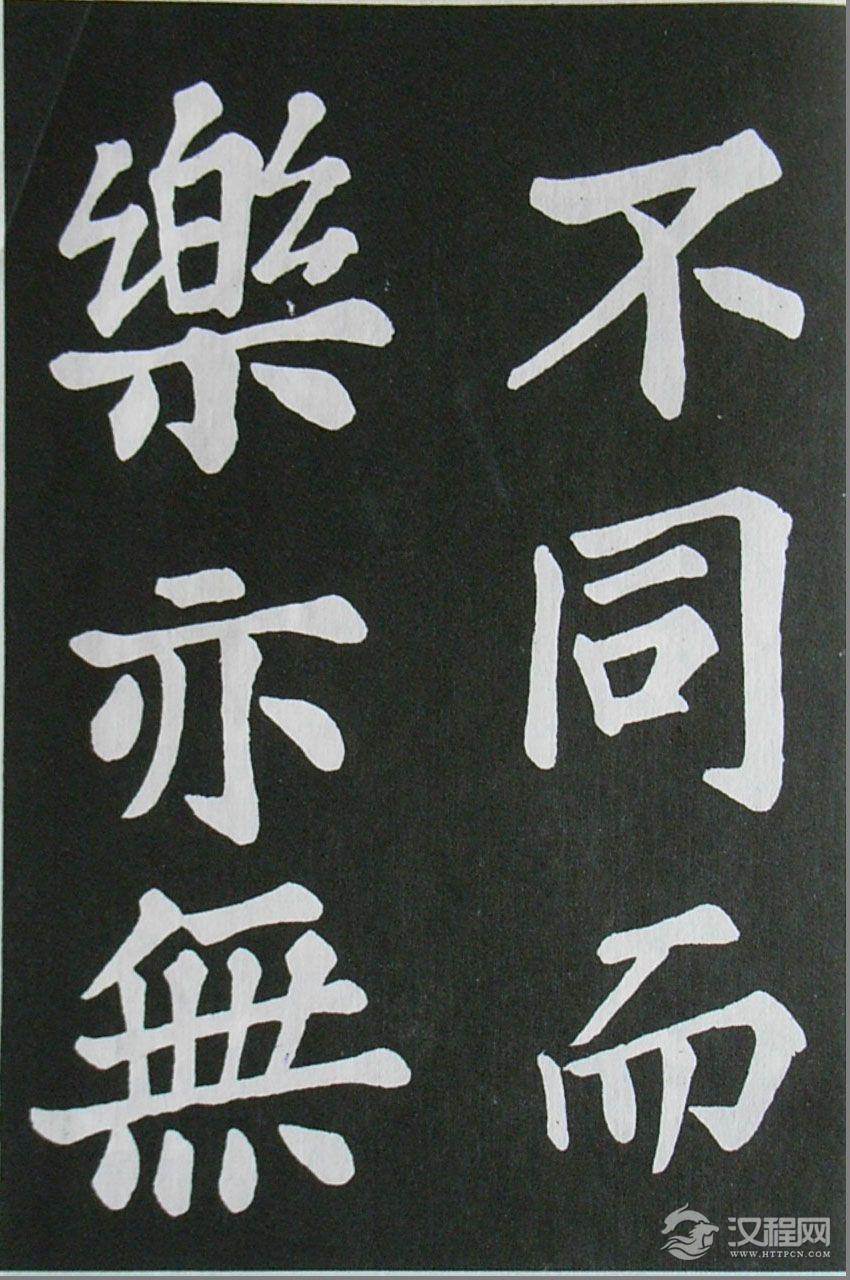 不同而
樂亦無
汉程网
WWW.HTTPCN.COM